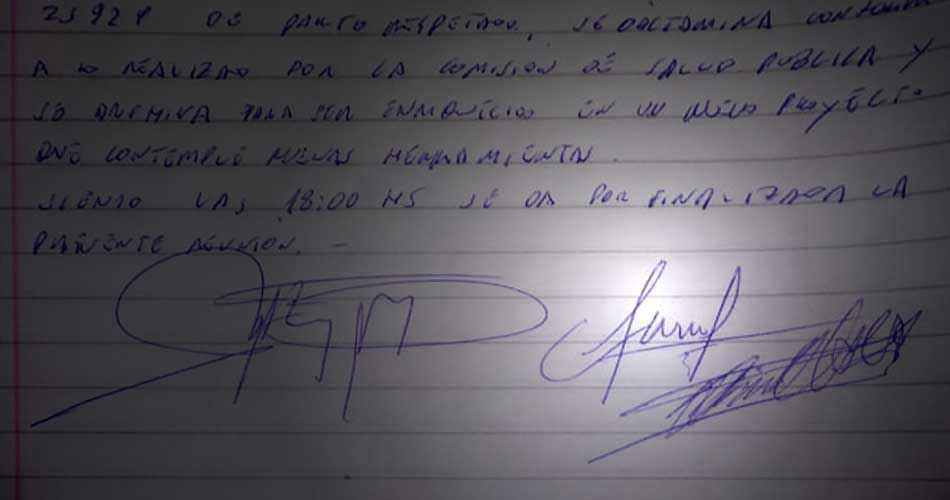 DE PARTO RESPETADO, SE DICTAMINA
A LO REALIZADO POR LA COMISION DE SALUD PUBLICA Y
SE PARA SER EN UN NUEVO PROYECTO
QUE CONTEMPLE NUEVAS HERRAMIENTAS.
SIENDO LAS 18:00 HS SE DA POR FINALIZADA LA
PRESENTE REUNION. -